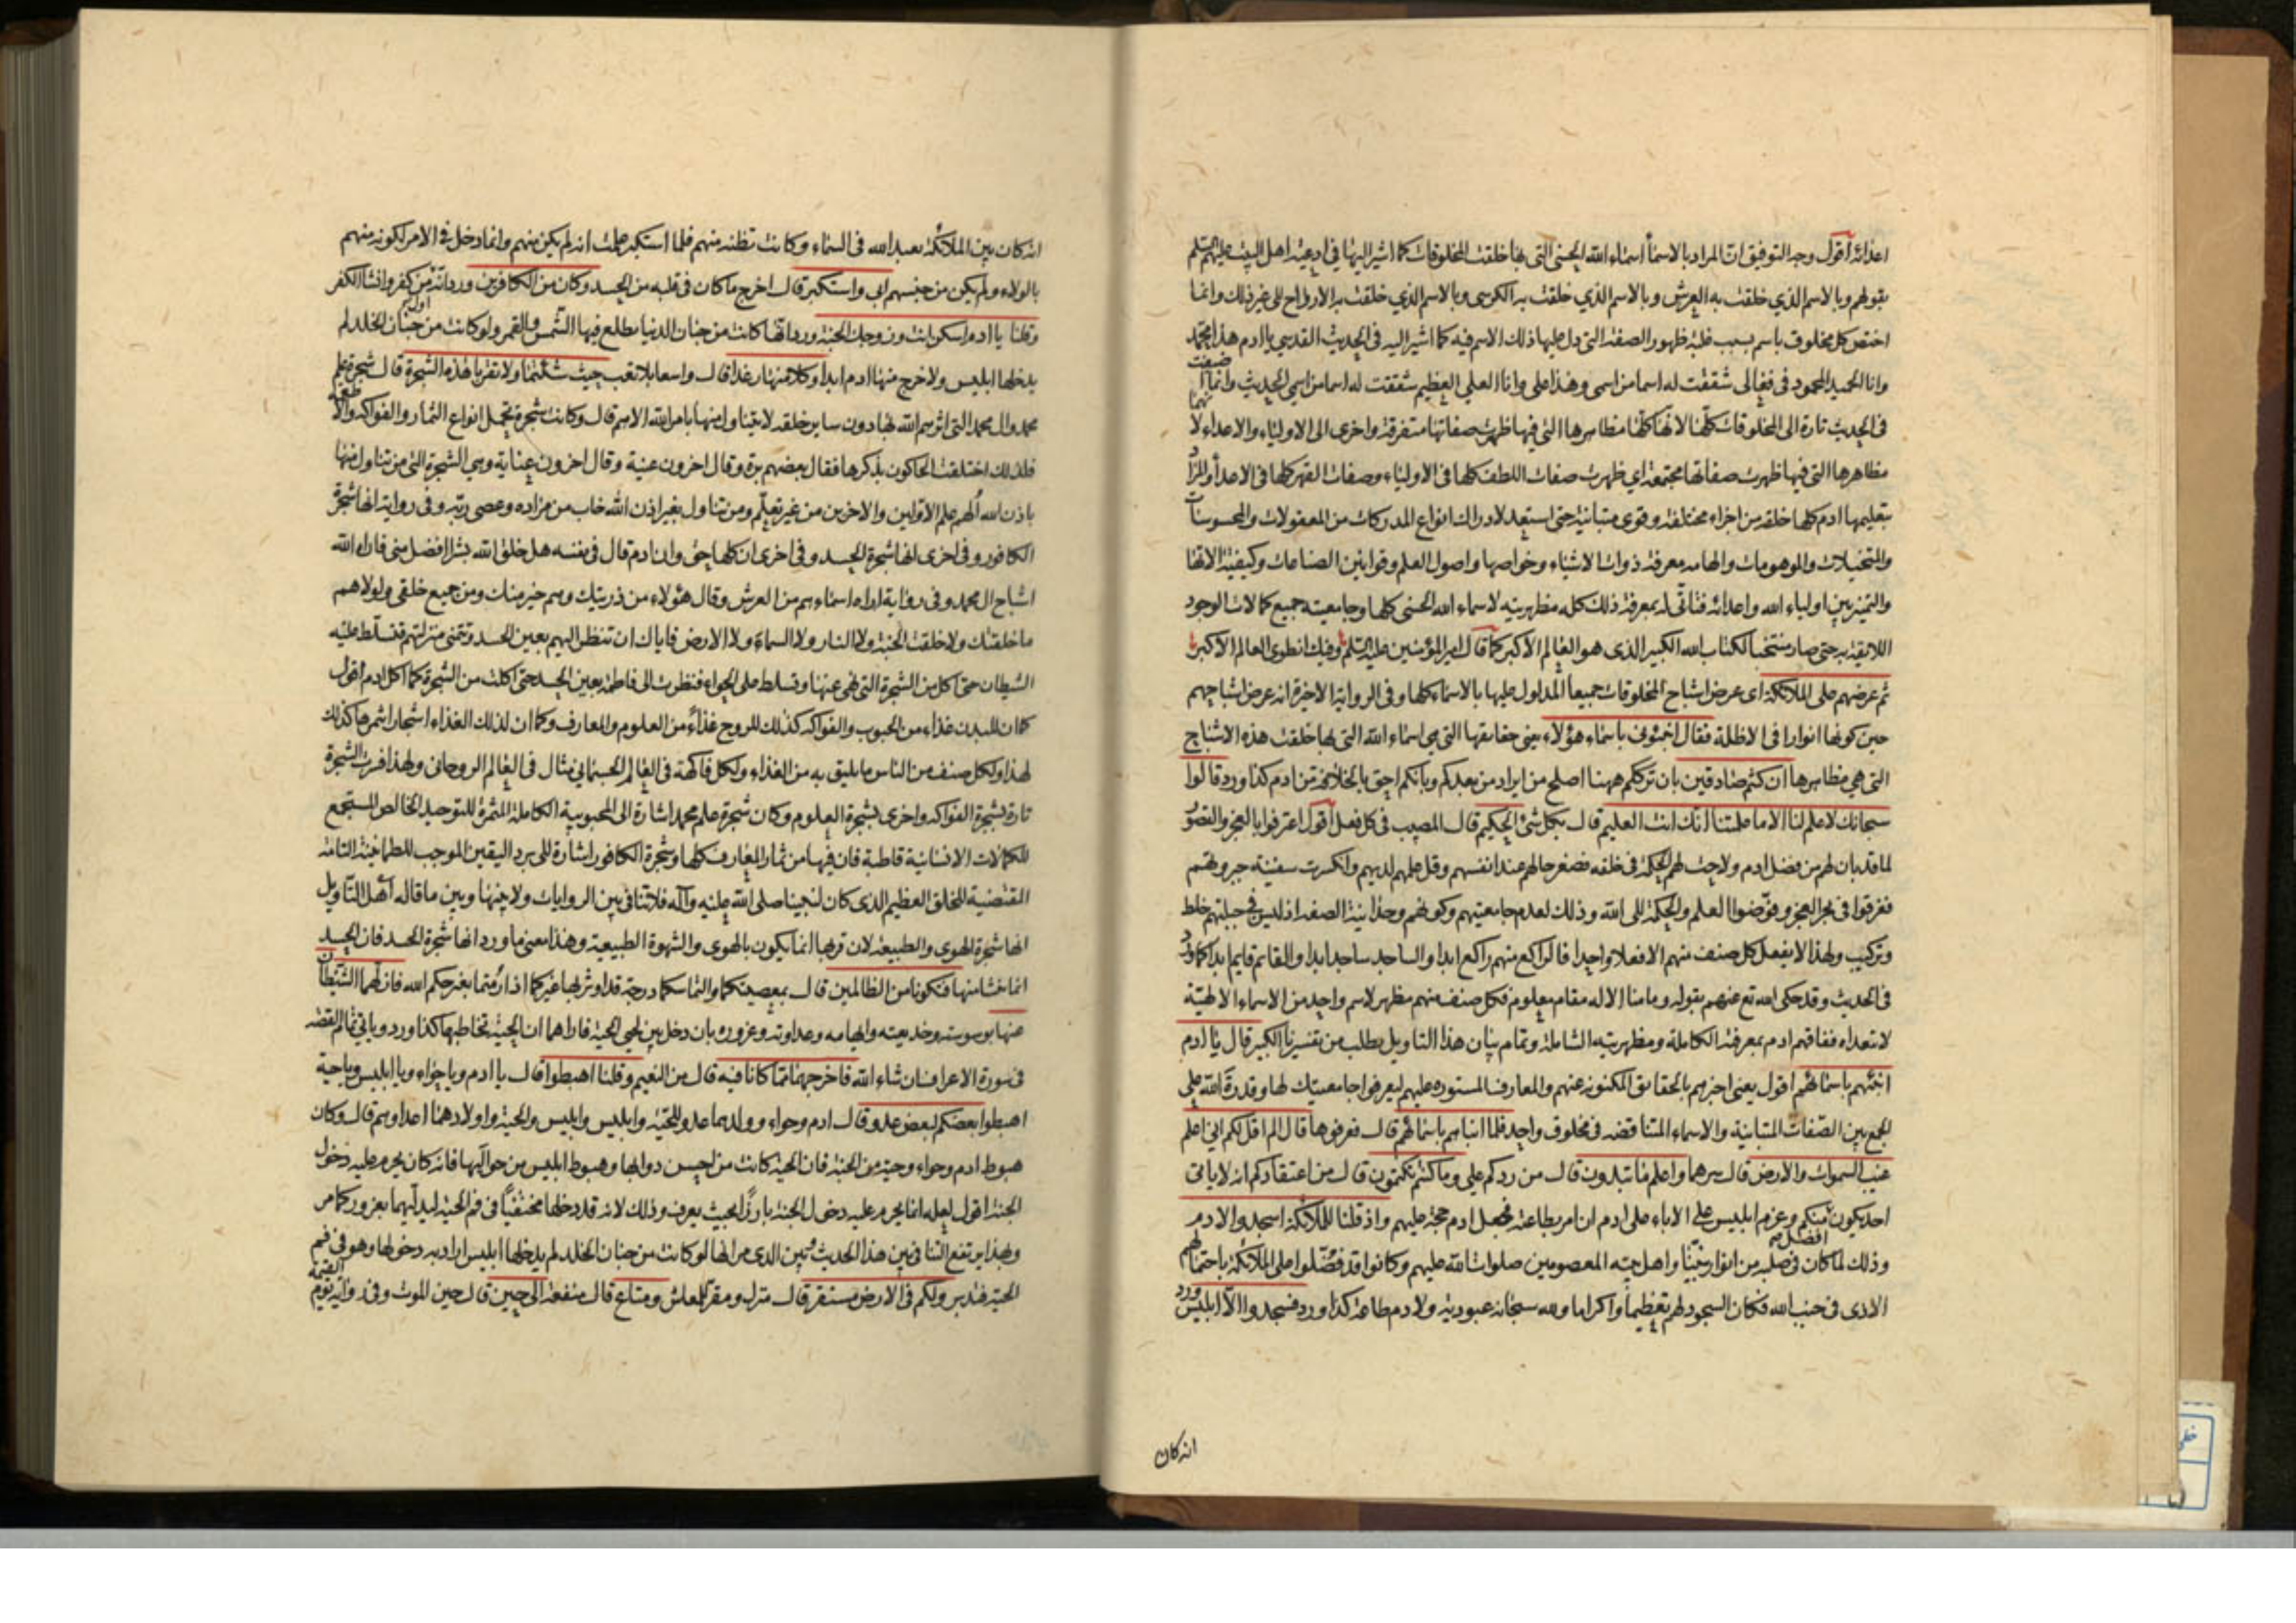 اعدائه اقول وجه التوفيق ان المراد بالاسماء اسماء الله الحسنى التي بها خلقت المخلوقات كما اشير اليها في ادعية اهل البيت عليهم السلم
بقولهم وبالاسم الذي خلقت به العرش وبالاسم الذي خلقت به الكرسي وبالاسم الذي خلقت به الارواح الى غير ذلك وانما
اختص كل مخلوق باسم بسبب غلبة ظهور الصفة التي دل عليها ذلك الاسم فيه كما اشير اليه في الحديث القدسي يا ادم هذا محمد
وانا الحميد المحمود في فعالي شققت له اسما من اسمي وهذا علي وانا العلي العظيم شققت له اسما من اسمي الحديث وانما اضيفت
في الحديث تارة الى المخلوقات كلها لانها كلها مظاهرها التي فيها ظهرت صفاتها متفرقة واخرى الى الاولياء والاعداء لانهما
مظاهرها التي فيها ظهرت صفاتها مجتمعة اي ظهرت صفات اللطف كلها في الاولياء وصفات القهر كلها في الاعداء والمراد
بتعليمها ادم كلها خلقه من اجزاء مختلفة وقوى متباينة حتى استعد لادراك انواع المدركات من المعقولات والمحسوسات
والمتخيلات والموهومات والهامه معرفة ذوات الاشياء وخواصها واصول العلم وقوانين الصناعات وكيفية الاتها
والتميز بين اولياء الله واعدائه فتاتى له بمعرفة ذلك كله مظهريته لاسماء الله الحسنى كلها وجامعيته جميع كمالات الوجود
اللائقة به حتى صار منتخبا لكتاب الله الكبير الذي هو العالم الاكبر كما قال امير المؤمنين عليه السلم وفيك انطوى العالم الاكبر
ثم عرضهم على الملائكة اى عرض اشباح المخلوقات جميعا المدلول عليها بالاسماء كلها وفي الرواية الاخيرة انه عرض اشباحهم
حين كونها انوارا في الاظلة فقال انبئوني باسماء هؤلاء يعني حقايقها التي هي اسماء الله التي بها خلقت هذه الاشباح
التي هي مظاهرها ان كنتم صادقين بان ترككم ههنا اصلح من ايراد من بعدكم وبانكم احق بالخلافة من ادم كذا ورد قالوا
سبحانك لا علم لنا الا ما علمتنا انك انت العليم قال بكل شئ الحكيم قال المصيب في كل فعل اقول اعترفوا بالعجز والقصور
لما قد بان لهم من فضل ادم ولاحت لهم الحكمة في خلقه فصغر حالهم عند انفسهم وقل علمهم لديهم وانكسرت سفينة جبروتهم
فغرقوا في بحر العجز وفوضوا العلم والحكمة الى الله وذلك لعدم جامعيتهم وكونهم وحدانية الصفة اذ ليس في جبلتهم خلط
وتركيب ولهذا لا يفعل كل صنف منهم الا فعلا واحدا فالراكع منهم راكع ابدا والساجد ساجد ابدا والقائم قايم ابدا كما ورد
في الحديث وقد حكى الله تع عنهم بقوله وما منا الا له مقام معلوم فكل صنف منهم مظهر لاسم واحد من الاسماء الالهية
لا يتعداه ففاقهم ادم بمعرفته الكاملة ومظهريته الشاملة وتمام بيان هذا التاويل يطلب من تفسيرنا الكبير قال يا ادم
انبئهم باسمائهم اقول يعني اخبرهم بالحقائق المكنونة عنهم والمعارف المستورة عليهم ليعرفوا جامعيتك لها وقدرة الله على
الجمع بين الصفات المتباينة والاسماء المتناقضة في مخلوق واحد فلما انباهم باسمائهم قال فعرفوها قال الم اقل لكم اني اعلم
غيب السموات والارض قال سرهما واعلم ما تبدون قال من ردكم علي وما كنتم تكتمون قال من اعتقادكم انه لا ياتي
احد يكون افضل منكم وعزم ابليس على الاباء على ادم ان امر بطاعته فجعل ادم حجة عليهم واذ قلنا للملائكة اسجدوا لادم
وذلك لما كان في صلبه من انوار نبينا واهل بيته المعصومين صلوات الله عليهم وكانوا قد فضلوا على الملائكة باحتمالهم
الاذى في جنب الله فكان السجود لهم تعظيما واكراما ولله سبحانه عبودية ولادم طاعة كذا ورد فسجدوا الا ابليس ورد
انه كان
انه كان بين الملائكة يعبد الله في السماء وكانت تظنه منهم فلما استكبر علمت انه لم يكن منهم وانما دخل في الامر لكونه منهم
بالولاء ولم يكن من جنسهم ابى واستكبر قال اخرج ما كان في قلبه من الحسد وكان من الكافرين ورد انه اول من كفر وانشا الكفر
وقلنا يا ادم اسكن انت وزوجك الجنة ورد انها كانت من جنان الدنيا يطلع فيها الشمس والقمر ولو كانت من جنان الخلد لم
يدخلها ابليس ولا خرج منها ادم ابدا وكلا منها رغدا قال واسعا بلا تعب حيث شئتما ولا تقربا هذه الشجرة قال شجرة علم
محمد وال محمد التي اثرهم الله بها دون ساير خلقه لا يتناول منها بامر الله الا هم قال وكانت شجرة تحمل انواع الثمار والفواكه والاطعمة
فلذلك اختلفت الحاكون بذكرها فقال بعضهم برة وقال اخرون عنبة وقال اخرون عنابة وهي الشجرة التي من تناول منها
باذن الله الهم علم الاولين والاخرين من غير تعلم ومن تناول بغير اذن الله خاب من مراده وعصى ربه وفي رواية انها شجرة
الكافور وفي اخرى انها شجرة الحسد وفي اخرى ان كلها حق وان ادم قال في نفسه هل خلق الله بشرا افضل مني فاراه الله
اشباح ال محمد وفي رواية اراه اسماءهم من العرش وقال هؤلاء من ذريتك وهم خير منك ومن جميع خلقي ولولاهم
ما خلقتك ولا خلقت الجنة ولا النار ولا السماء ولا الارض فاياك ان تنظر اليهم بعين الحسد وتمنى منزلتهم فتسلط عليه
الشيطان حتى اكل من الشجرة التي نهى عنها وتسلط على الحواء فنظرت الى فاطمة بعين الحسد حتى اكلت من الشجرة كما اكل ادم اقول
كما ان للبدن غذاء من الحبوب والفواكه كذلك للروح غذاء من العلوم والمعارف وكما ان لذلك الغذاء اشجار اثمرها كذلك
لهذا ولكل صنف من الناس ما يليق به من الغذاء ولكل فاكهة في العالم الجسماني مثال في العالم الروحاني ولهذا فسرت الشجرة
تارة بشجرة الفواكه واخرى بشجرة العلوم وكان شجرة علم محمد اشارة الى المحبوبية الكاملة المثمرة للتوحيد الخالص المستجمع
للكمالات الانسانية قاطبة فان فيها من ثمار المعارف كلها وشجرة الكافور اشارة الى برد اليقين الموجب للطمانينة التامة
المقتضية للخلق العظيم الذي كان لنبينا صلى الله عليه وآله فلا تنافي بين الروايات ولا بينها وبين ما قاله اهل التاويل
انها شجرة الهوى والطبيعة لان قربها انما يكون بالهوى والشهوة الطبيعية وهذا معنى ما ورد انها شجرة الحسد فان الحسد
انما نشا منها فتكونا من الظالمين قال بمعصيتكما والتماسكما درجة قد اوثر بها غيركما اذا رمتما بغير حكم الله فازلهما الشيطان
عنها بوسوسته وخديعته وايهامه وعداوته وغروره بان دخل بين لحيي الحية فاراهما ان الحية تخاطبهما كذا ورد وياتي تمام القصة
في سورة الاعراف ان شاء الله فاخرجهما مما كانا فيه قال من النعيم وقلنا اهبطوا قال يا ادم ويا حواء ويا ابليس ويا حية
اهبطوا بعضكم لبعض عدو قال ادم وحواء وولدهما عدو للحية وابليس وابليس والحية واولادهما اعداؤهم قال وكان
هبوط ادم وحواء وحية من الجنة فان الحية كانت من احسن دوابها وهبوط ابليس من حواليها فانه كان يحرم عليه دخول
الجنة اقول لعله انما يحرم عليه دخول الجنة بارزا بحيث يعرف وذلك لانه قد دخلها مختفيا في فم الحية ليدليهما بغرور كما مر
وبهذا يرتفع التنافي بين هذا الحديث وبين الذي مر انها لو كانت من جنان الخلد لم يدخلها ابليس اراد به دخولها وهو في فم
الحية فتدبر ولكم في الارض مستقر قال منزل ومقر للمعاش ومتاع قال منفعة الى حين قال حين الموت وفي رواية يوم القيمة